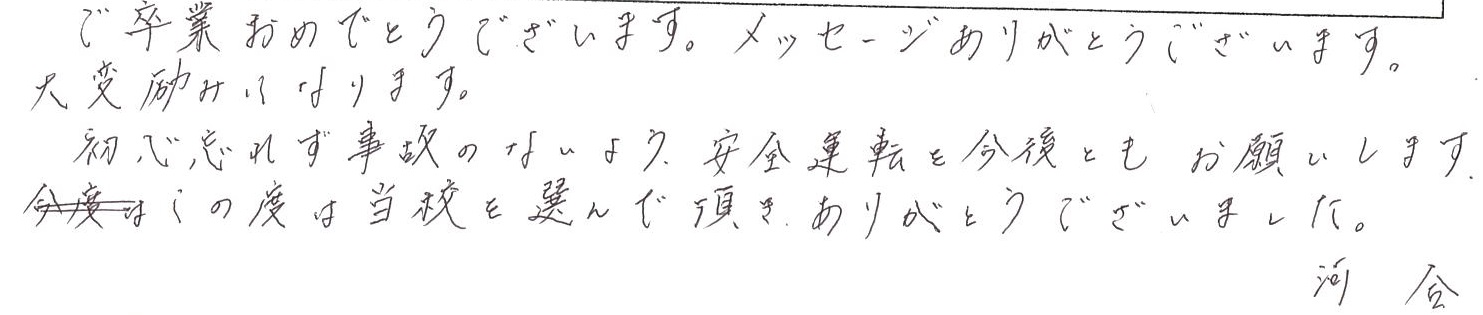 ご卒業おめでとうございます。メッセージありがとうございます。
大変励みになります。
初心忘れず事故のないよう、安全運転を今後ともお願いします。
今度はこの度は当校を選んで頂き、ありがとうございました。
河合